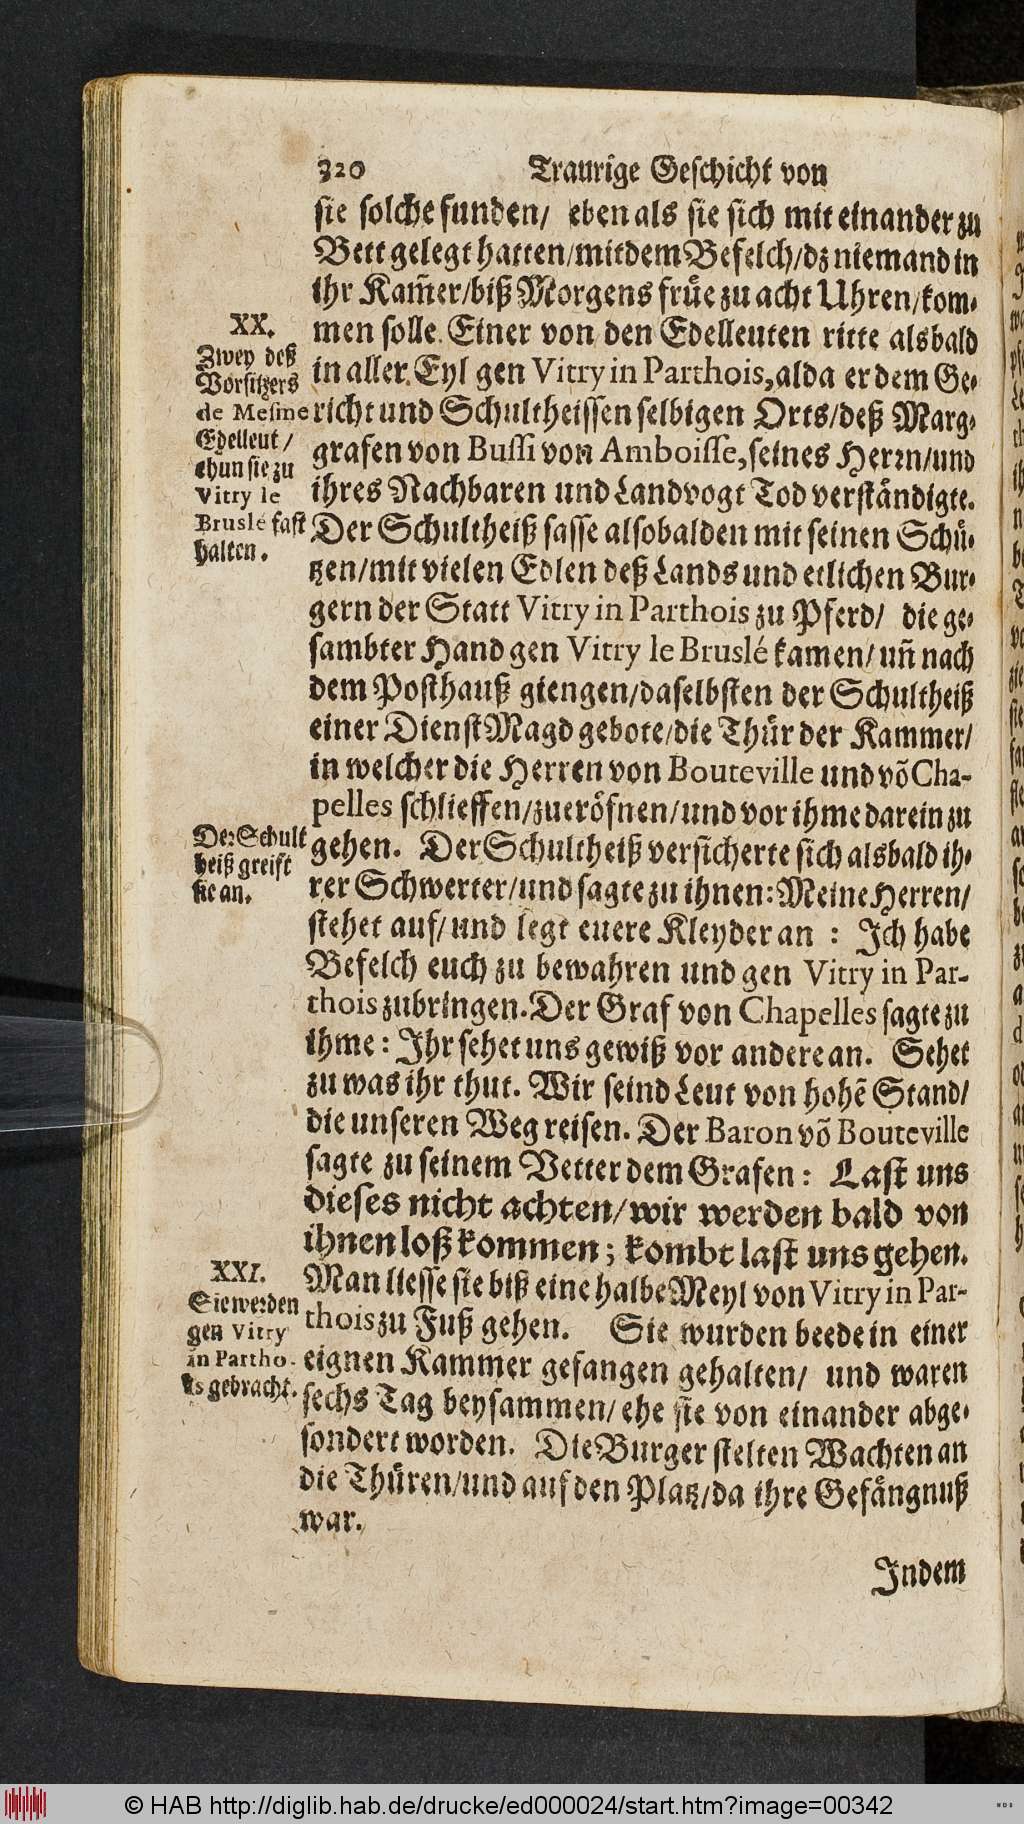 320 Traurige Geschicht von
sie solche funden/ eben als sie sich mit einander zu
Bett gelegt hatten/mit dem Befelch/dz niemand in
ihr Kam̃er/biß Morgens früe zu acht Uhren/kom-
men solle. Einer von den Edelleuten ritte alsbald
in aller Eyl gen Vitry in Parthois, alda er dem Ge-
richt und Schultheissen selbigen Orts/deß Marg-
grafen von Bussi von Amboisse, seines Herrn/und
ihres Nachbaren und Landvogt Tod verständigte.
Der Schultheiß sasse alsobalden mit seinen Schü-
tzen/mit vielen Edlen deß Lands und etlichen Bur-
gern der Statt Vitry in Parthois zu Pferd/ die ge-
sambter Hand gen Vitry le Bruslé kamen/ uñ nach
dem Posthauß giengen/daselbsten der Schultheiß
einer DienstMagd gebote/die Thür der Kammer/
in welcher die Herren von Bouteville und võ Cha-
pelles schlieffen/zueröfnen/und vor ihme darein zu
gehen. Der Schultheiß versicherte sich alsbald ih-
rer Schwerter/und sagte zu ihnen: Meine Herren/
stehet auf/und legt euere Kleyder an : Ich habe
Befelch euch zu bewahren und gen Vitry in Par-
thois zubringen. Der Graf von Chapelles sagte zu
ihme: Ihr sehet uns gewiß vor andere an. Sehet
zu was ihr thut. Wir seind Leut von hohẽ Stand/
die unseren Weg reisen. Der Baron võ Bouteville
sagte zu seinem Vetter dem Grafen: Last uns
dieses nicht achten/wir werden bald von
ihnen loß kommen; kombt last uns gehen.
Man liesse sie biß eine halbe Meyl von Vitry in Par-
thois zu Fuß gehen. Sie wurden beede in einer
eignen Kammer gefangen gehalten/ und waren
sechs Tag beysammen/ehe sie von einander abge-
sondert worden. Die Burger stelten Wachten an
die Thüren/und auf den Platz/da ihre Gefängnuß
war.
Indem
XX.
Zwey deß
Vorsitzers
de Mesme
Edelleut/
thun sie zu
Vitry le
Bruslé fast
halten.
Der Schult
heiß greift
sie an.
XXI.
Sie werden
gen Vitry
in Partho-
is gebracht.
© HAB http://diglib.hab.de/drucke/ed000024/start.htm?image=00342